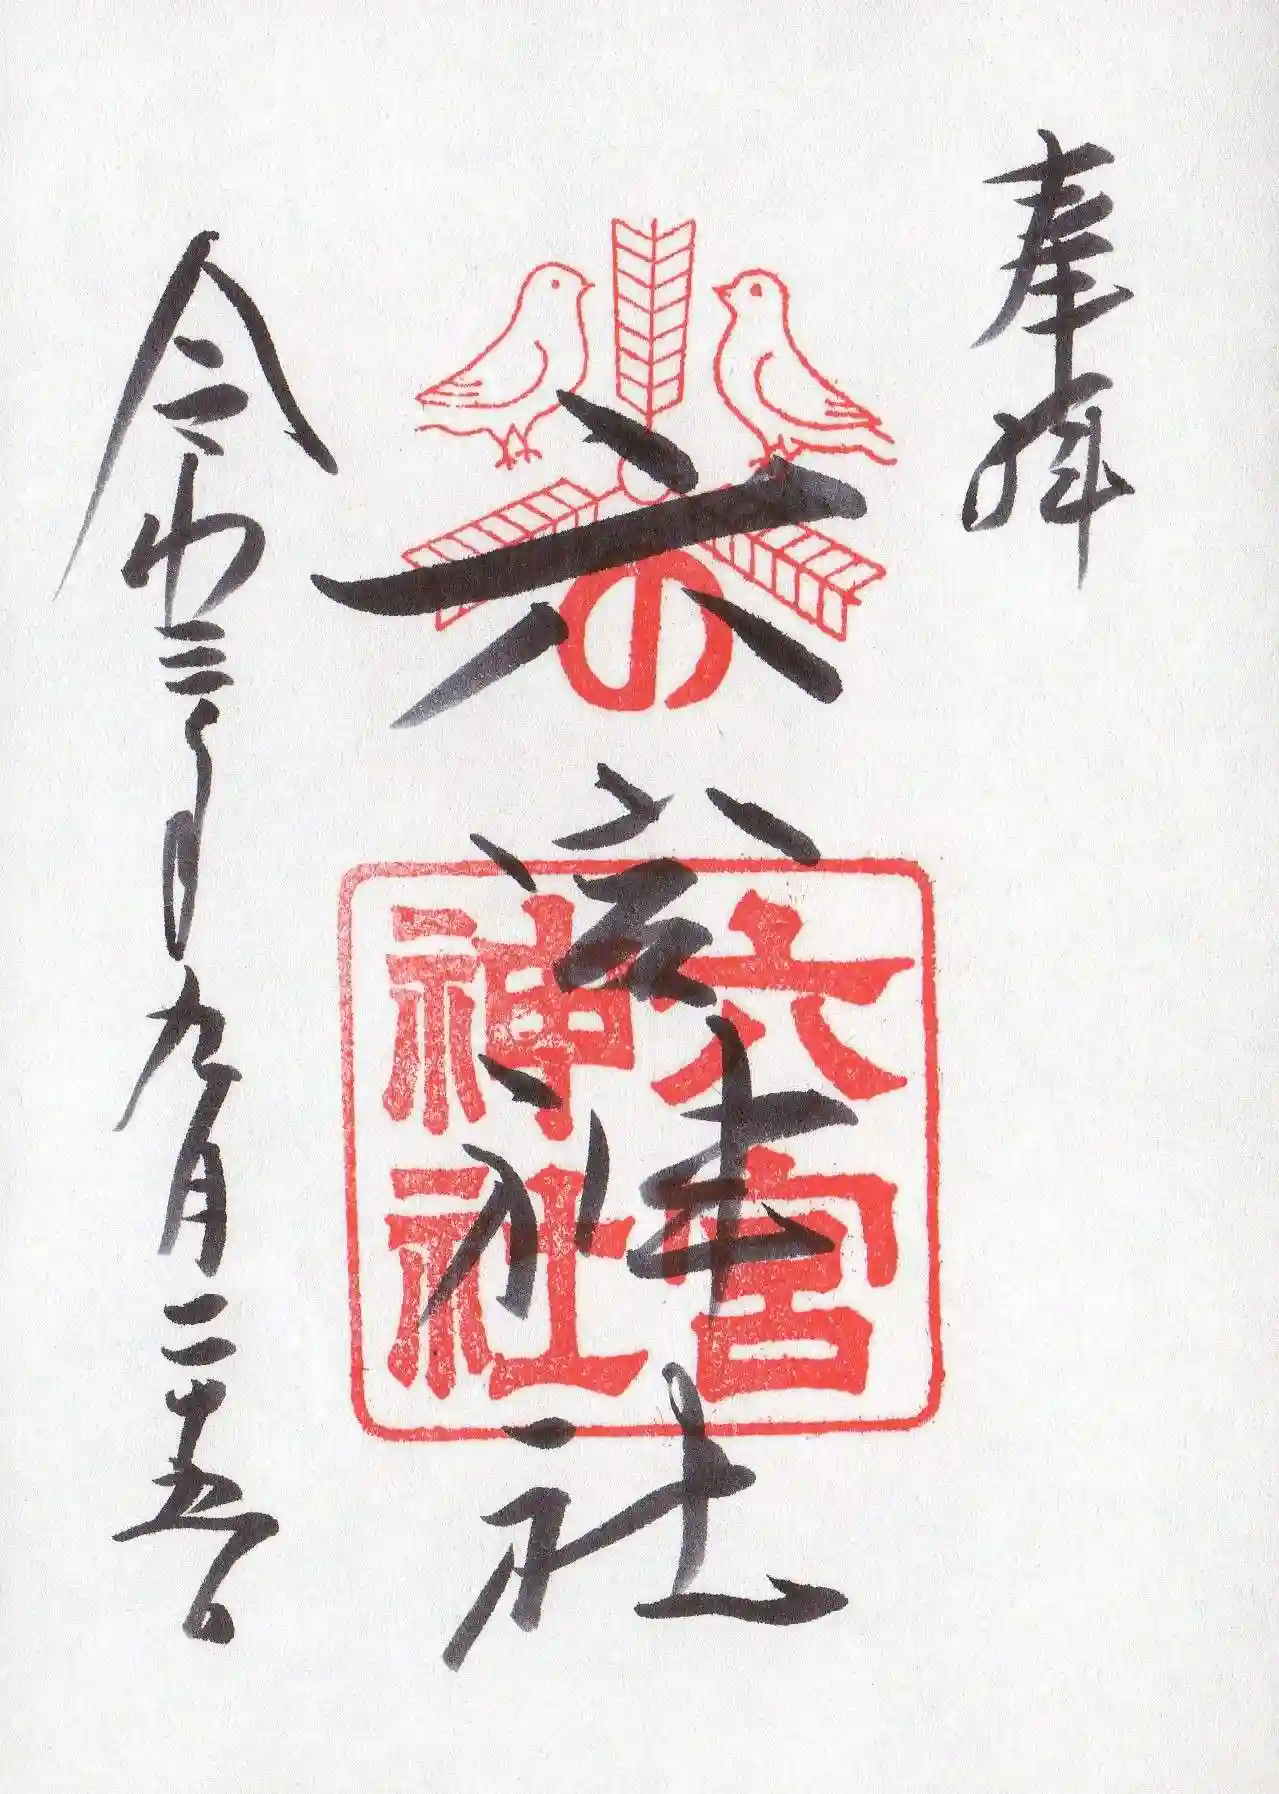 奉拝
六宮神社
の
六宮
神社
令和三年九月二十五日